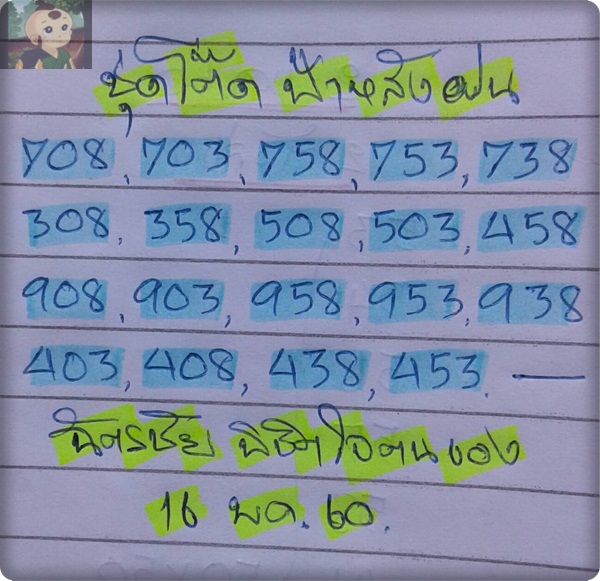 ชุดโต๊ด ฟ้าหลังฝน
708, 703, 758, 753, 738
308, 358, 508, 503, 458
908, 903, 958, 953, 938
403, 408, 438, 453. —
ฉัตรชัย พิชิตใจตนเอง
16 พ.ค. 60.